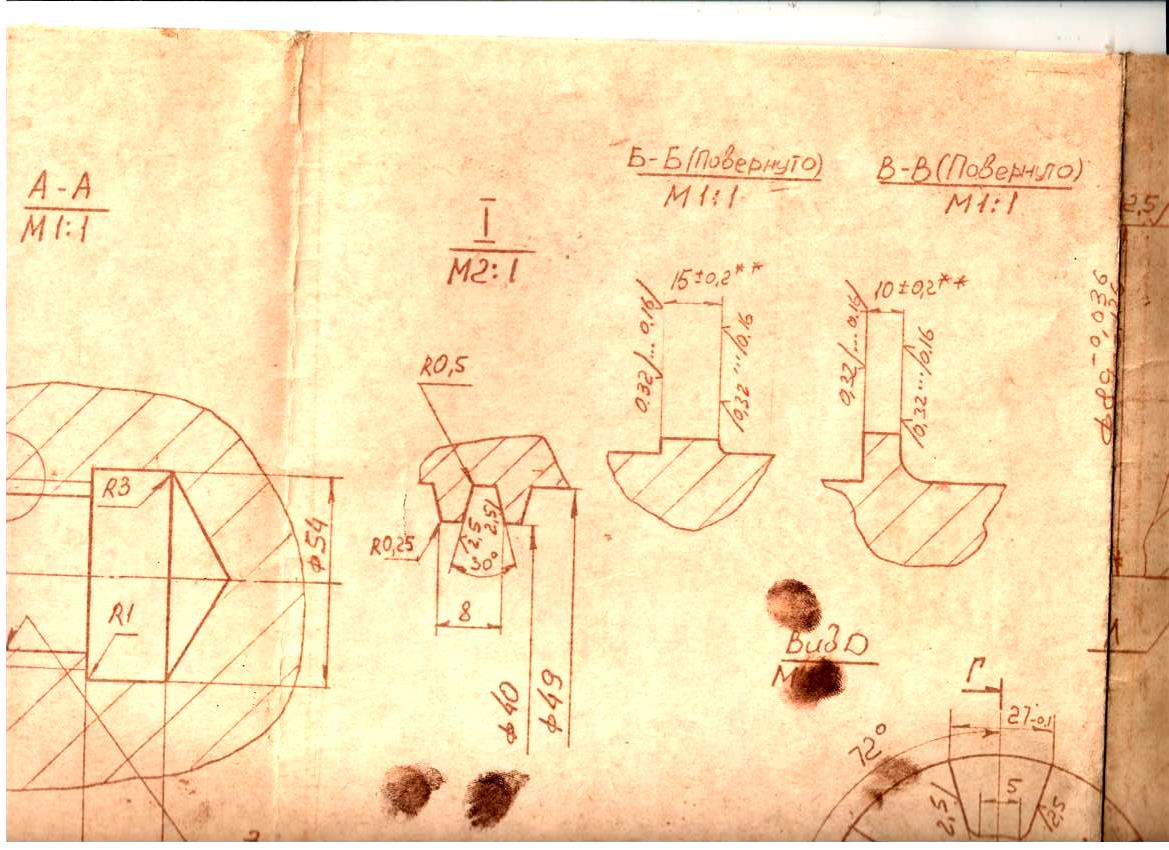 А-А
М1:1
I
М2:1
Б-Б(Повернуто)
М1:1
В-В(Повернуто)
М1:1
2,5
15±0,2**
10±0,2**
0,32/...0,16
0,32...0,16
0,32/...0,16
0,32...0,16
ϕ80-0,036
R0,5
R3
R0,25
2,5
2,5
30°
ϕ54
R1
8
ϕ40
ϕ49
Вид D
М
Г
27-0,1
72°
5
2,5
2,5